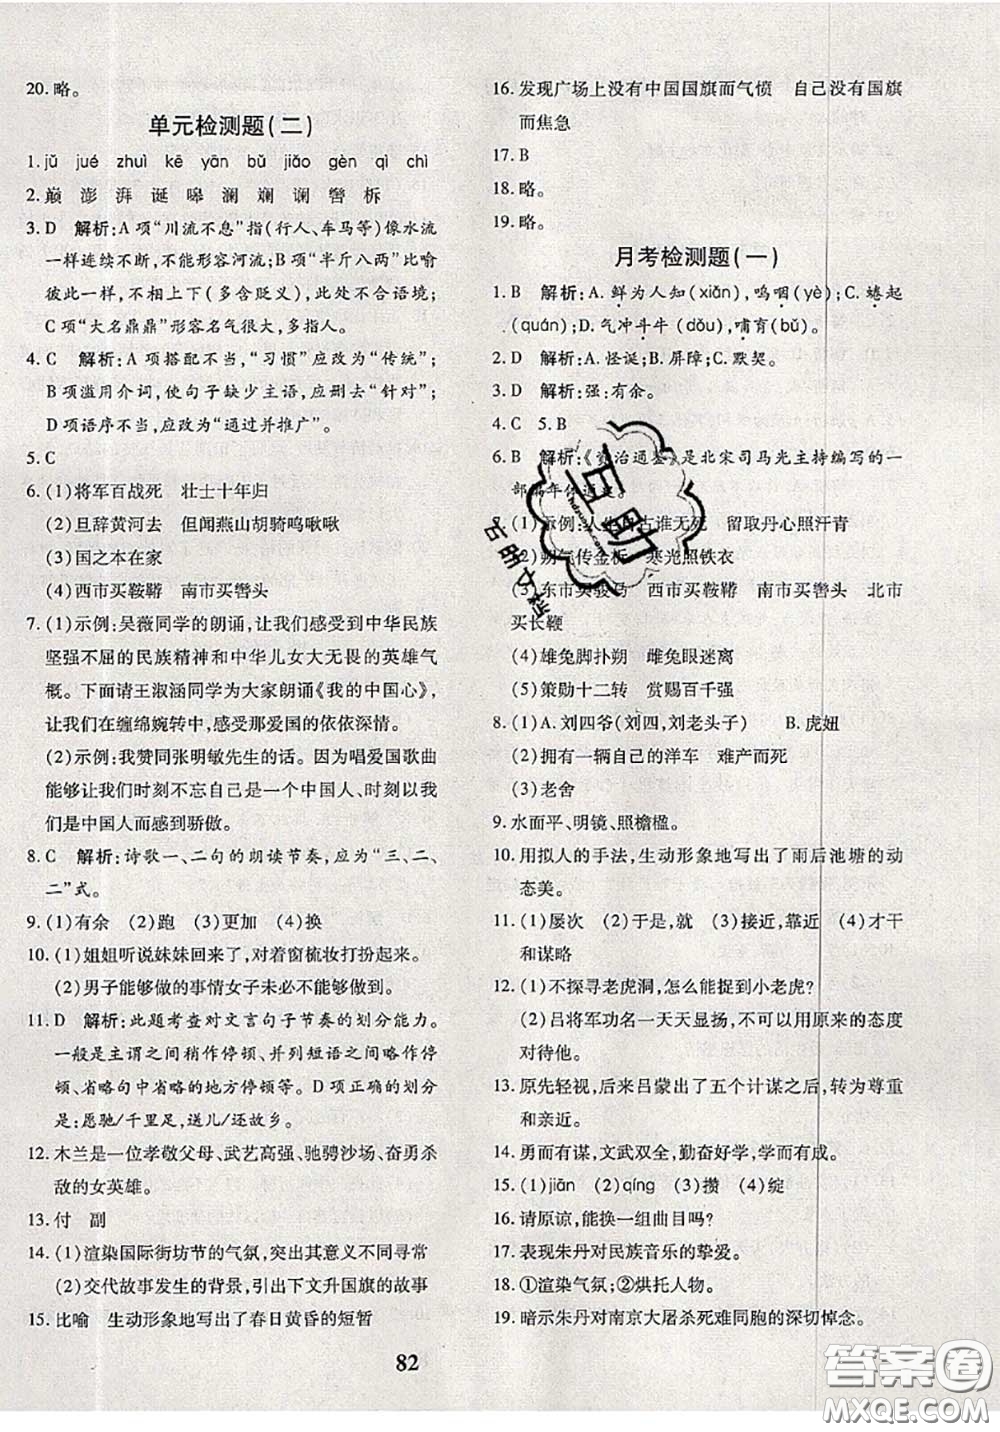 20.略。
单元检测题(二)
1.jǔ jué zhuì kē yān bǔ jiǎo gèn qì chì
2.巅 澎 湃 诞 嗥 澜 斓 谰 辔 柝
3.D 解析:A项“川流不息”指(行人、车马等)像水流
一样连续不断,不能形容河流;B项“半斤八两”比喻
彼此一样,不相上下(多含贬义),此处不合语境;
C项“大名鼎鼎”形容名气很大,多指人。
4.C 解析:A项搭配不当,“习惯”应改为“传统”;
B项滥用介词,使句子缺少主语,应删去“针对”;
D项语序不当,应改为“通过并推广”。
5.C
6.(1)将军百战死 壮士十年归
(2)旦辞黄河去 但闻燕山胡骑鸣啾啾
(3)国之本在家
(4)西市买鞍鞯 南市买辔头
7.(1)示例:吴薇同学的朗诵,让我们感受到中华民族
坚强不屈的民族精神和中华儿女大无畏的英雄气
概。下面请王淑涵同学为大家朗诵《我的中国心》,
让我们在缠绵婉转中,感受那爱国的依依深情。
(2)示例:我赞同张明敏先生的话。因为唱爱国歌曲
能够让我们时刻不忘自己是一个中国人、时刻以我
们是中国人而感到骄傲。
8.C 解析:诗歌一、二句的朗读节奏,应为“三、二、
二”式。
9.(1)有余 (2)跑 (3)更加 (4)换
10.(1)姐姐听说妹妹回来了,对着窗梳妆打扮起来。
(2)男子能够做的事情女子未必不能够做到。
11.D 解析:此题考查对文言句子节奏的划分能力。
一般是主谓之间稍作停顿、并列短语之间略作停
顿、省略句中省略的地方停顿等。D项正确的划分
是:愿驰/千里足,送儿/还故乡。
12.木兰是一位孝敬父母、武艺高强、驰骋沙场、奋勇杀
敌的女英雄。
13.付 副
14.(1)渲染国际街坊节的气氛,突出其意义不同寻常
(2)交代故事发生的背景,引出下文升国旗的故事
15.比喻 生动形象地写出了春日黄昏的短暂
82
16.发现广场上没有中国国旗而气愤 自己没有国旗
而焦急
17.B
18.略。
19.略。
月考检测题(一)
1.B 解析:A.鲜为人知(xiǎn),呜咽(yè);C.蜷起
(quán);D.气冲斗牛(dǒu),哺育(bǔ)。
2.D 解析:A.怪诞;B.屏障;C.默契。
3.D 解析:强:有余。
4.C 5.B
6.B 解析:《资治通鉴》是北宋司马光主持编写的一
部编年体通史。
7.(1)示例:人生自古谁无死 留取丹心照汗青
(2)朔气传金柝 寒光照铁衣
(3)东市买骏马 西市买鞍鞯 南市买辔头 北市
买长鞭
(4)雄兔脚扑朔 雌兔眼迷离
(5)策勋十二转 赏赐百千强
8.(1)A.刘四爷(刘四,刘老头子) B.虎妞
(2)拥有一辆自己的洋车 难产而死
(3)老舍
9.水面平、明镜、照檐楹。
10.用拟人的手法,生动形象地写出了雨后池塘的动
态美。
11.(1)屡次 (2)于是,就 (3)接近,靠近 (4)才干
和谋略
12.(1)不探寻老虎洞,怎么能捉到小老虎?
(2)吕将军功名一天天显扬,不可以用原来的态度
对待他。
13.原先轻视,后来吕蒙出了五个计谋之后,转为尊重
和亲近。
14.勇而有谋,文武双全,勤奋好学,学而有成。
15.(1)jiān (2)qíng (3)攒 (4)绽
16.请原谅,能换一组曲目吗?
17.表现朱丹对民族音乐的挚爱。
18.①渲染气氛;②烘托人物。
19.暗示朱丹对南京大屠杀死难同胞的深切悼念。
互助
答案卷
MXQE.COM